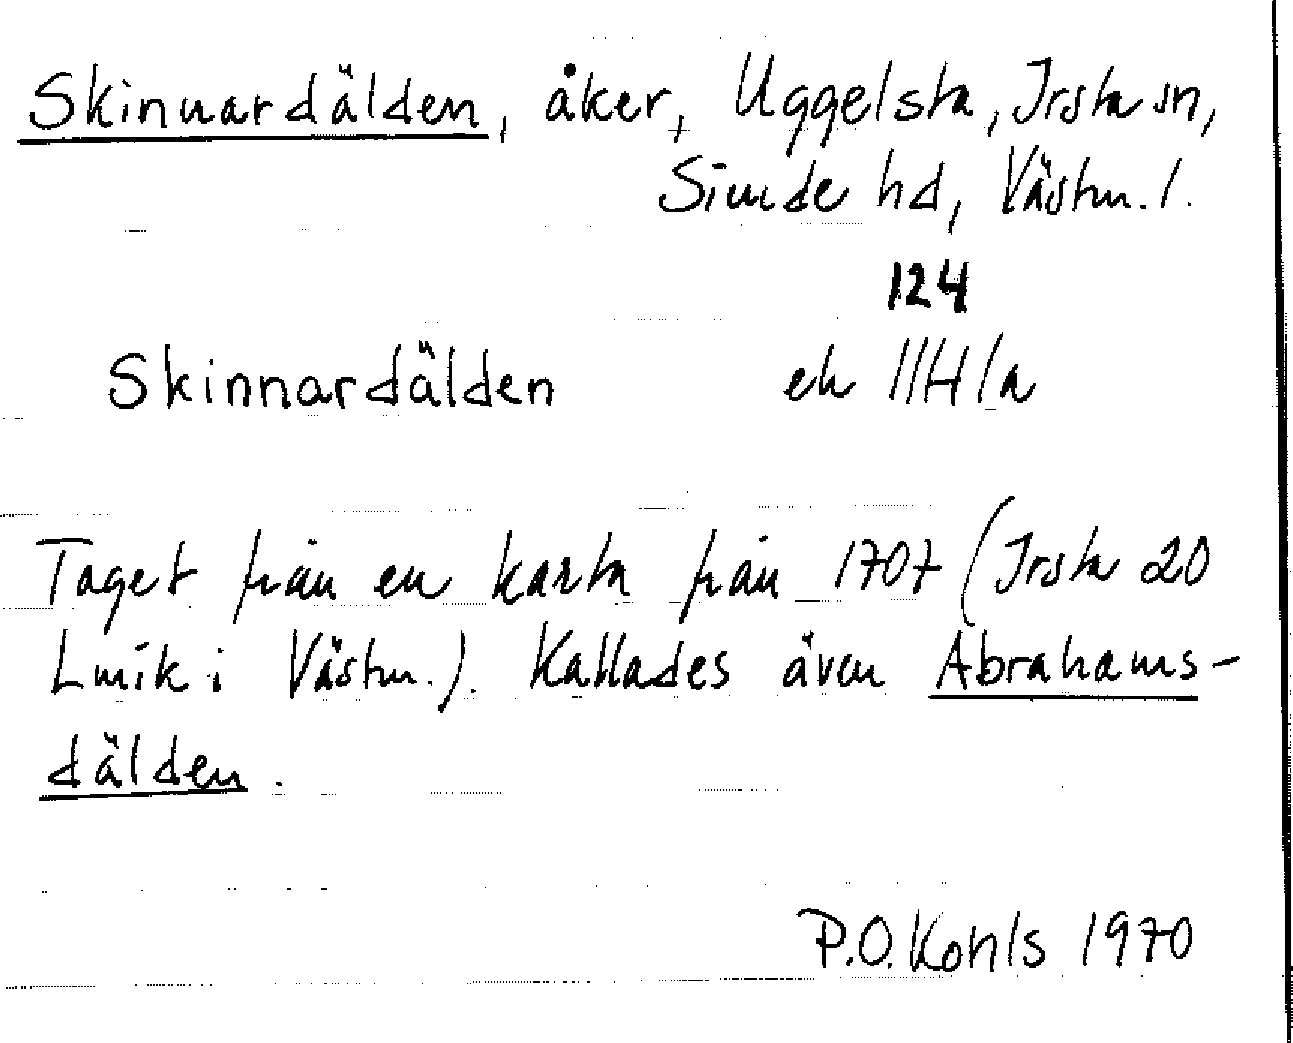 Skinnardälden, åker, Uggelsta, Irsta sn,
Siende hd, Västm. l.
124
Skinnardälden ek 11H/a
Taget från en karta från 1707 (Irsta 20
Lmik i Västm.). Kallades även Abrahams-
dälden.
P.O. Kohls 1970